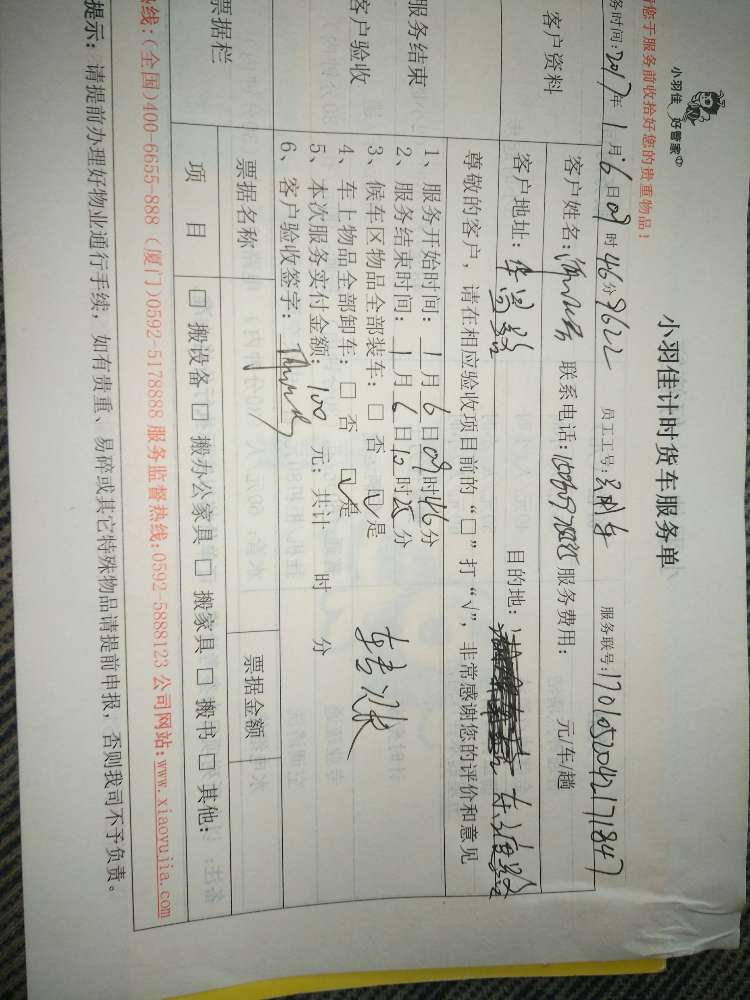 小羽佳 好管家
小羽佳计时货车服务单
您于服务前收拾好您的贵重物品!
务时间:2017年1月6日09时46分9622 员工工号: 服务联号:17010520421 71847
客户资料
客户姓名: 联系电话: 服务费用: 元/车/趟
客户地址: 目的地:
尊敬的客户,请在相应验收项目前的“□”打“√”,非常感谢您的评价和意见
服务结束
客户验收
1、服务开始时间: 1月6日09时46分
2、服务结束时间: 1月6日12时 分
3、候车区物品全部装车:□ 否 ☑是
4、车上物品全部卸车:□ 否 ☑是
5、本次服务实付金额: 100 元;共计 时 分
6、客户验收签字:
转账
票据栏
票据名称 票据金额
项 目 □ 搬设备 □ 搬办公家具 □ 搬家具 □ 搬书 □ 其他:
热线:(全国)400-6655-888 (厦门)0592-5178888 服务监督热线:0592-5888123 公司网站:www.xiaoyujia.com
提示:请提前办理好物业通行手续,如有贵重、易碎或其它特殊物品请提前申报,否则我司不予负责。